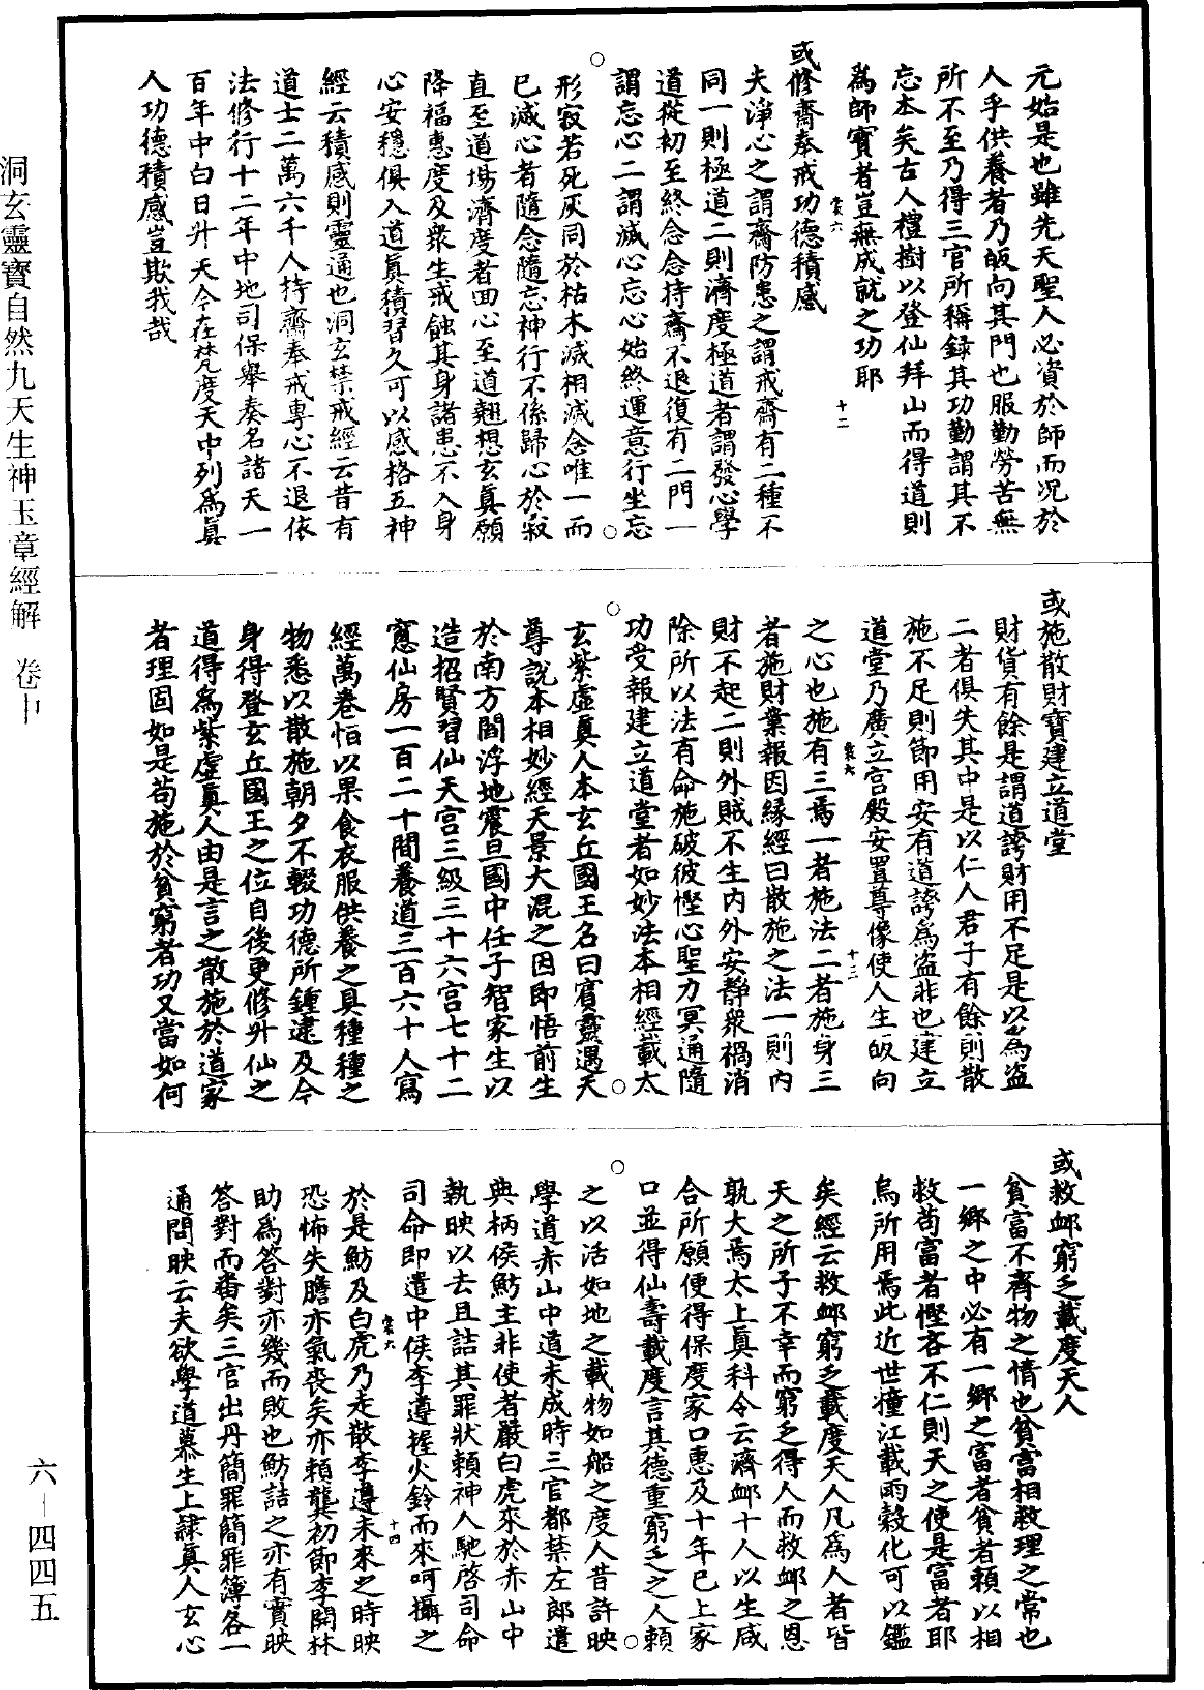 元始是也雖先天聖人必資於師而况於
人乎供養者乃皈向其門也服勤勞苦無
所不至乃得三官所稱録其功勤謂其不
忘本矣古人禮樹以登仙拜山而得道則
為師寳者豈無成就之功耶
裳六
十二
或修齋奉戒功德積感
夫淨心之謂齋防患之謂戒齋有二種不
同一則極道二則濟度極道者謂發心學
道從初至終念念持齋不退復有二門一
謂忘心二謂滅心忘心始終運意行坐忘
形寂若死灰同於枯木滅相滅念唯一而
已滅心者隨念隨忘神行不係歸心於寂
直至道場濟度者回心至道翹想玄眞願
降福惠度及衆生戒蝕其身諸患不入身
心安穩俱入道眞積習久可以感格五神
經云積感則靈通也洞玄禁戒經云昔有
道士二萬六千人持齋奉戒專心不退依
法修行十二年中地司保舉奏名諸天一
百年中白日升天今在梵度天中列爲眞
人功德積感豈欺我哉
或施散財寳建立道堂
財貨有餘是謂道誇財用不足是以為盜
二者俱失其中是以仁人君子有餘則散
施不足則節用安有道誇爲盜非也建立
道堂乃廣立宫殿安置尊像使人生皈向
裳六
十三
之心也施有三焉一者施法二者施身三
者施財業報因緣經曰散施之法一則内
財不起二則外賊不生内外安靜衆禍消
除所以法有命施破彼慳心聖力冥通隨
功受報建立道堂者如妙法本相經載太
玄紫虚眞人本玄丘國王名曰賓靈遇天
尊説本相妙經天景大混之因即悟前生
於南方閻浮地震旦國中任子智家生以
造招賢習仙天宫三級三十六宫七十二
窻仙房一百二十間養道三百六十人寫
經萬卷恒以果食衣服供養之具種種之
物悉以散施朝夕不輟功德所鍾逮及今
身得登玄丘國王之位自後更修升仙之
道得爲紫虚眞人由是言之散施於道家
者理固如是苟施於貧窮者功又當如何
或救邺窮乏載度天人
貧富不齊物之情也貧富相救理之常也
一鄉之中必有一鄉之富者貧者頼以相
救苟富者慳吝不仁則天之使是富者耶
烏所用焉此近世橦江載雨穀化可以鑑
矣經云救邺窮乏載度天人凡爲人者皆
天之所子不幸而窮乏得人而救邺之恩
孰大焉太上眞科令云濟邺十人以生咸
合所願便得保度家口惠及十年已上家
口並得仙壽載度言其德重窮乏之人頼
之以活如地之載物如船之度人昔許映
學道赤山中道未成時三官都禁左郎遣
典柄侯魴主非使者嚴白虎來於赤山中
執映以去且詰其罪狀頼神人馳啓司命
司命即遣中侯李遵握火鈴而來呵攝之
裳六
十四
於是魴及白虎乃走散李遵未來之時映
恐怖失膽亦氣喪矣亦頼龔初節李開林
助爲答對亦幾而敗也魴詰之亦有實映
答對而畨矣三官出丹簡罪簡罪簿各一
通問映云夫欲學道慕生上隷眞人玄心
洞玄靈寶自然九天生神玉章經解 卷中
六－四四五